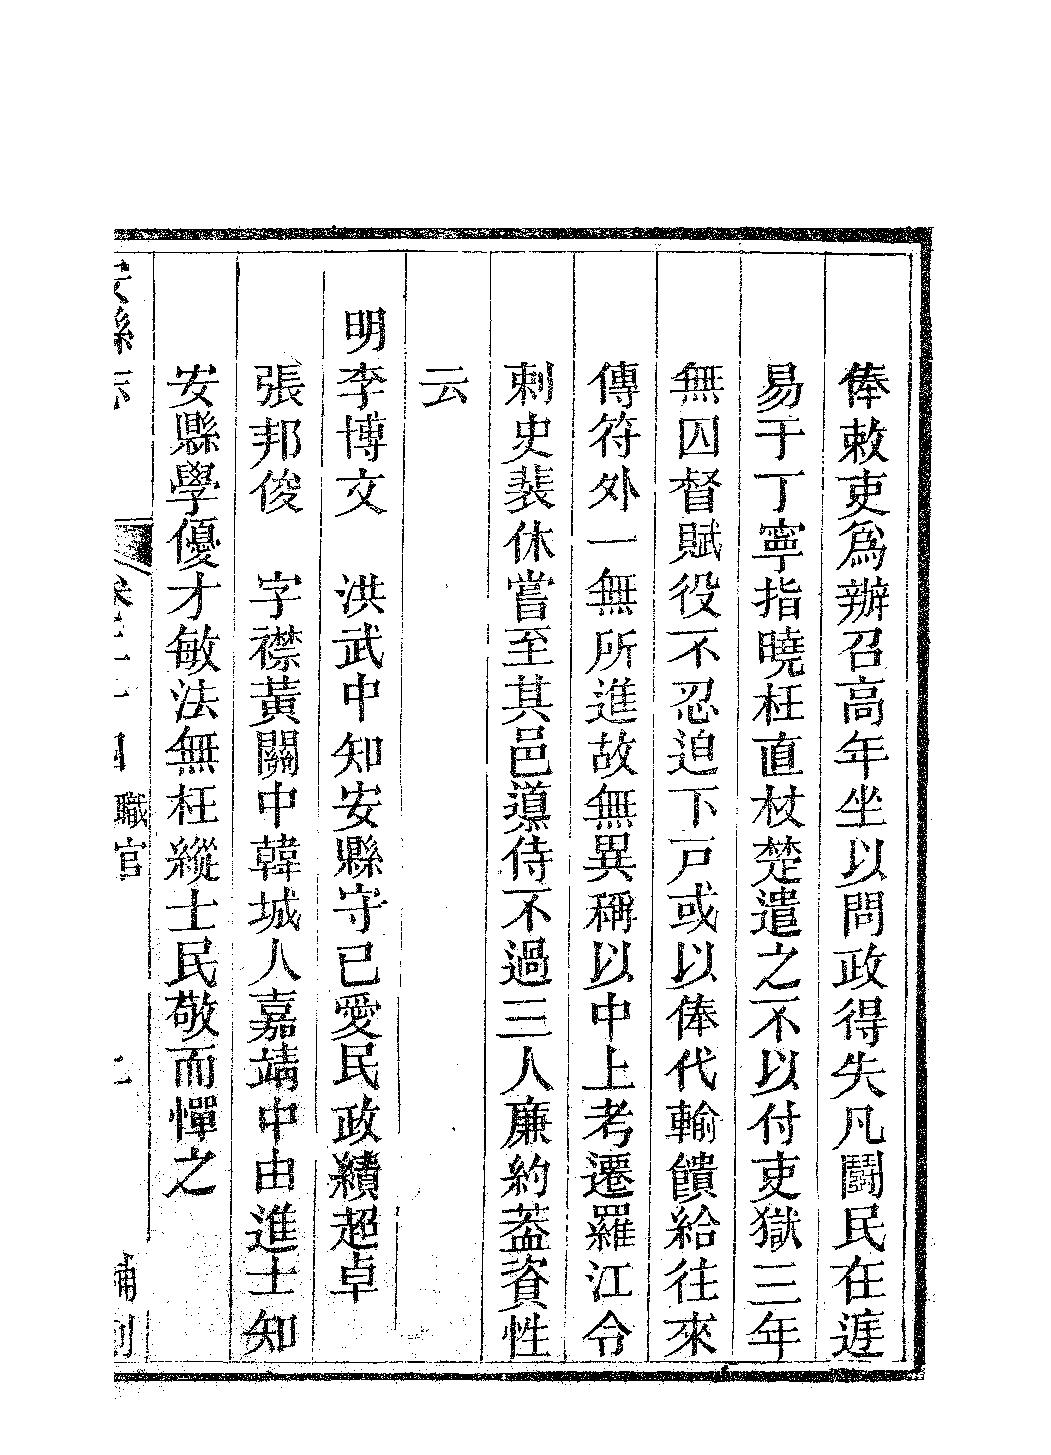 俸敕吏爲辦召高年坐以問政得失凡鬪民在𨓍
易于丁寧指曉枉直杖楚遣之不以付吏獄三年
無囚督賦役不忍迫下戸或以俸代輸饋給往來
傳符外一無所進故無異稱以中上考遷羅江令
刺史裴休嘗至其邑𨗉侍不過三人廉約葢資性
云
明李博文　洪武中知安縣守己愛民政績超卓
張邦俊　字襟黃關中韓城人嘉靖中由進士知
安縣學優才敏法無枉縱士民敬而憚之
職官